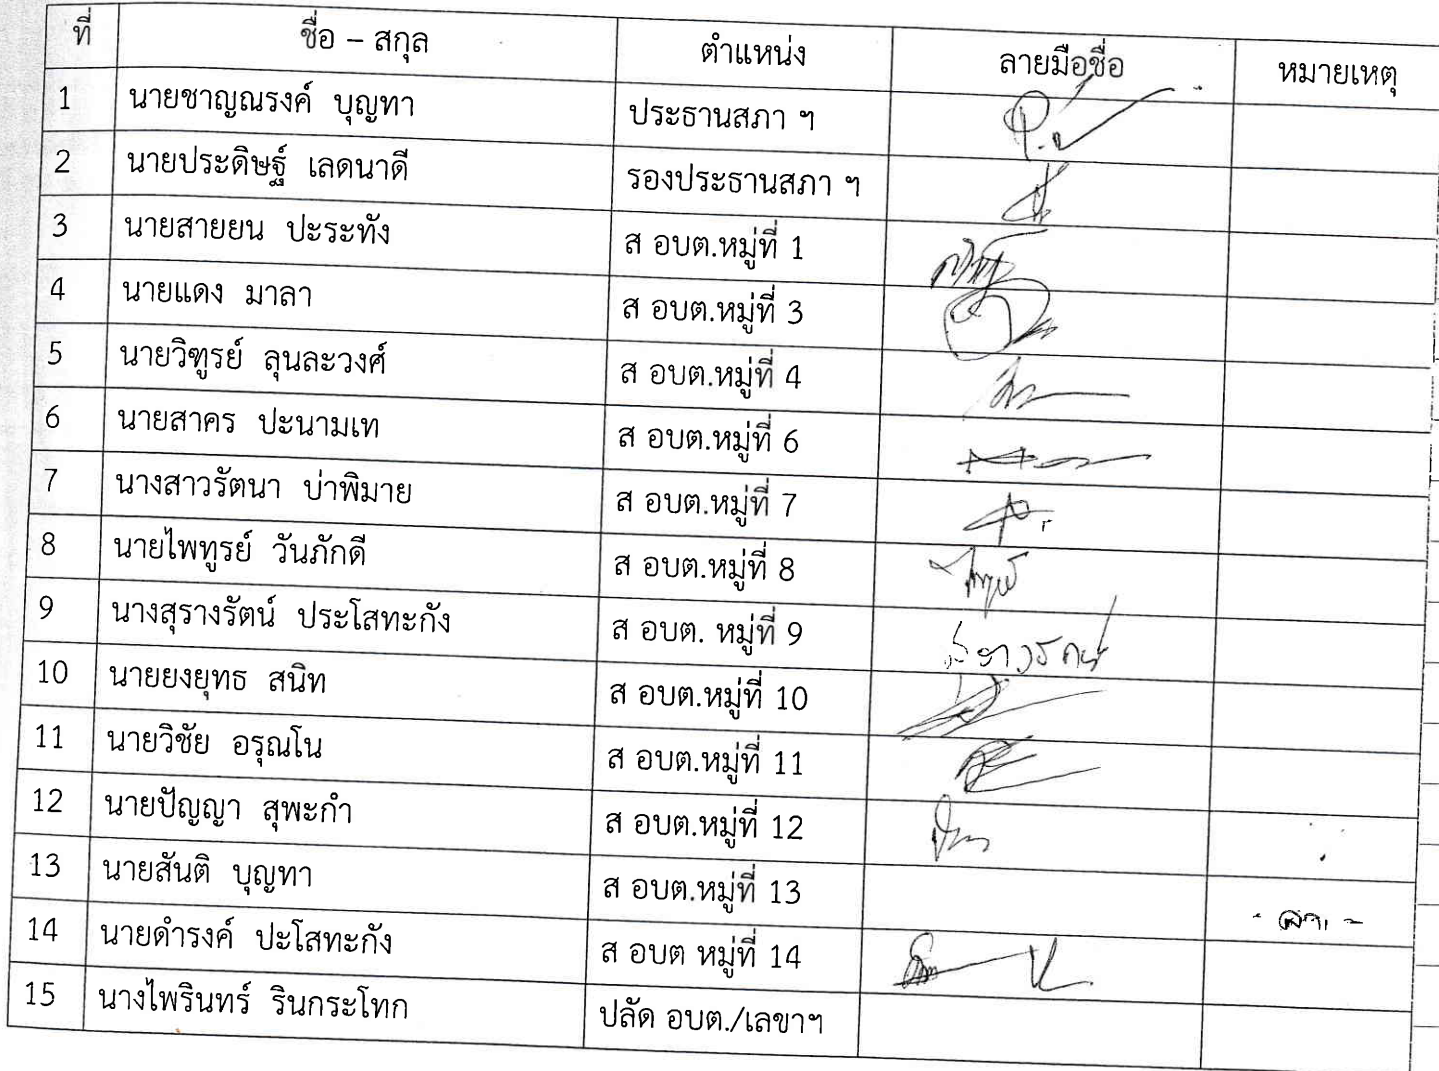 ที่ ชื่อ – สกุล ตำแหน่ง ลายมือชื่อ หมายเหตุ
1 นายชาญณรงค์ บุญทา ประธานสภา ฯ
2 นายประดิษฐ์ เลดนาดี รองประธานสภา ฯ
3 นายสายยน ปะระทัง ส อบต.หมู่ที่ 1
4 นายแดง มาลา ส อบต.หมู่ที่ 3
5 นายวิฑูรย์ ลุนละวงศ์ ส อบต.หมู่ที่ 4
6 นายสาคร ปะนามเท ส อบต.หมู่ที่ 6
7 นางสาวรัตนา บ่าพิมาย ส อบต.หมู่ที่ 7
8 นายไพทูรย์ วันภักดี ส อบต.หมู่ที่ 8
9 นางสุรางรัตน์ ประโสทะกัง ส อบต. หมู่ที่ 9
10 นายยงยุทธ สนิท ส อบต.หมู่ที่ 10
11 นายวิชัย อรุณโน ส อบต.หมู่ที่ 11
12 นายปัญญา สุพะกำ ส อบต.หมู่ที่ 12
13 นายสันติ บุญทา ส อบต.หมู่ที่ 13
14 นายดำรงค์ ปะโสทะกัง ส อบต หมู่ที่ 14
15 นางไพรินทร์ รินกระโทก ปลัด อบต./เลขาฯ